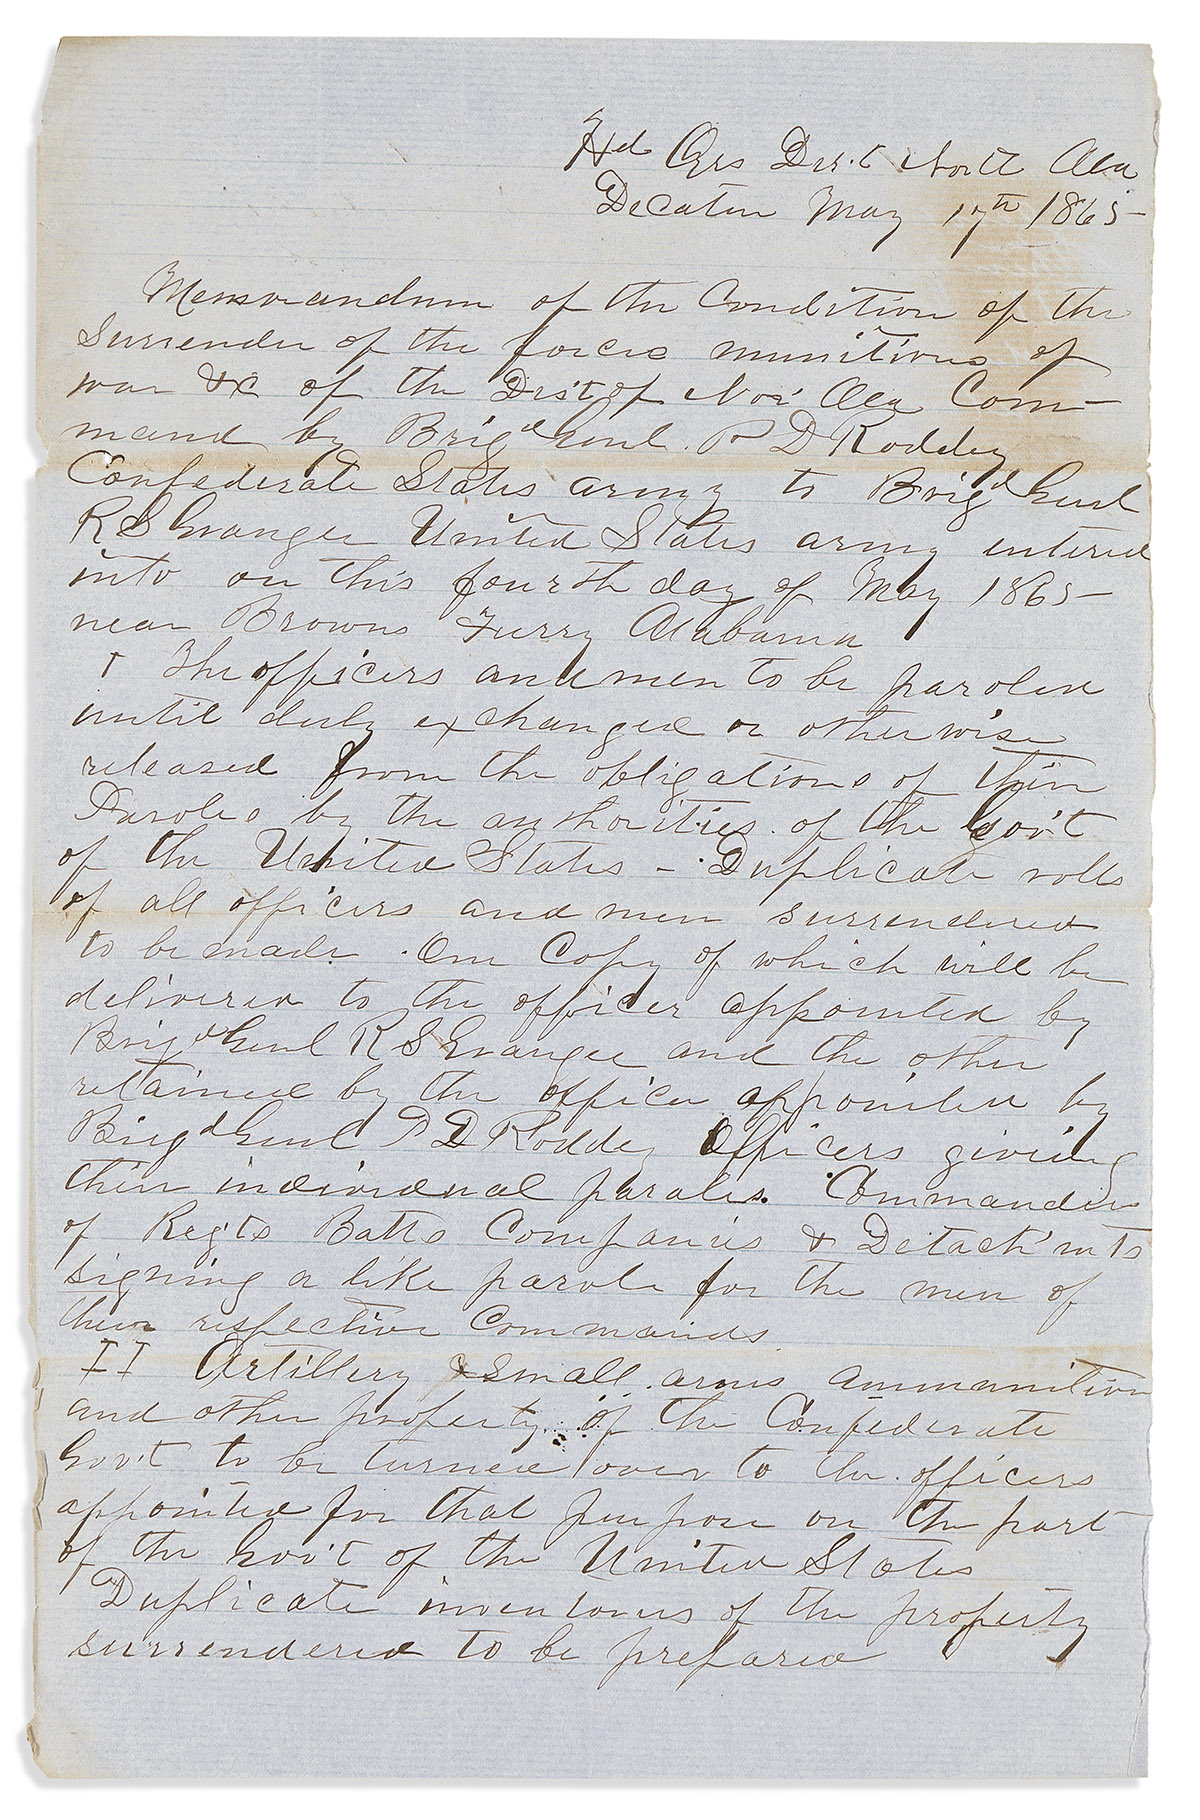 Hd Qrs Dis't North Ala
Decatur May 17th 1865
Memorandum of the Condition of the
Surrender of the forces munitions of
war &c of the Dist of Nor' Ala Com-
mand by Brigd Genl. P D Roddey
Confederate States army to Brigd Genl
R S Granger United States army entered
into on this fourth day of May 1865
near Browns Ferry Alabama
I The officers and men to be paroled
until duly exchanged or otherwise
released from the obligations of their
Paroles by the authorities of the Gov't
of the United States - Duplicate rolls
of all officers and men surrendered
to be made. One Copy of which will be
delivered to the officer appointed by
Brigd Genl R S Granger and the other
retained by the officer appointed by
Brigd Genl P D Roddey Officers giving
their individual paroles. Commanders
of Reg'ts Batts Companies & Detach'mts
signing a like parole for the men of
their respective Commands
II Artillery & small arms ammunition
and other property of the Confederate
Gov't to be turned over to the officers
appointed for that purpose on the part
of the Gov't of the United States
Duplicate inventories of the property
surrendered to be prepared